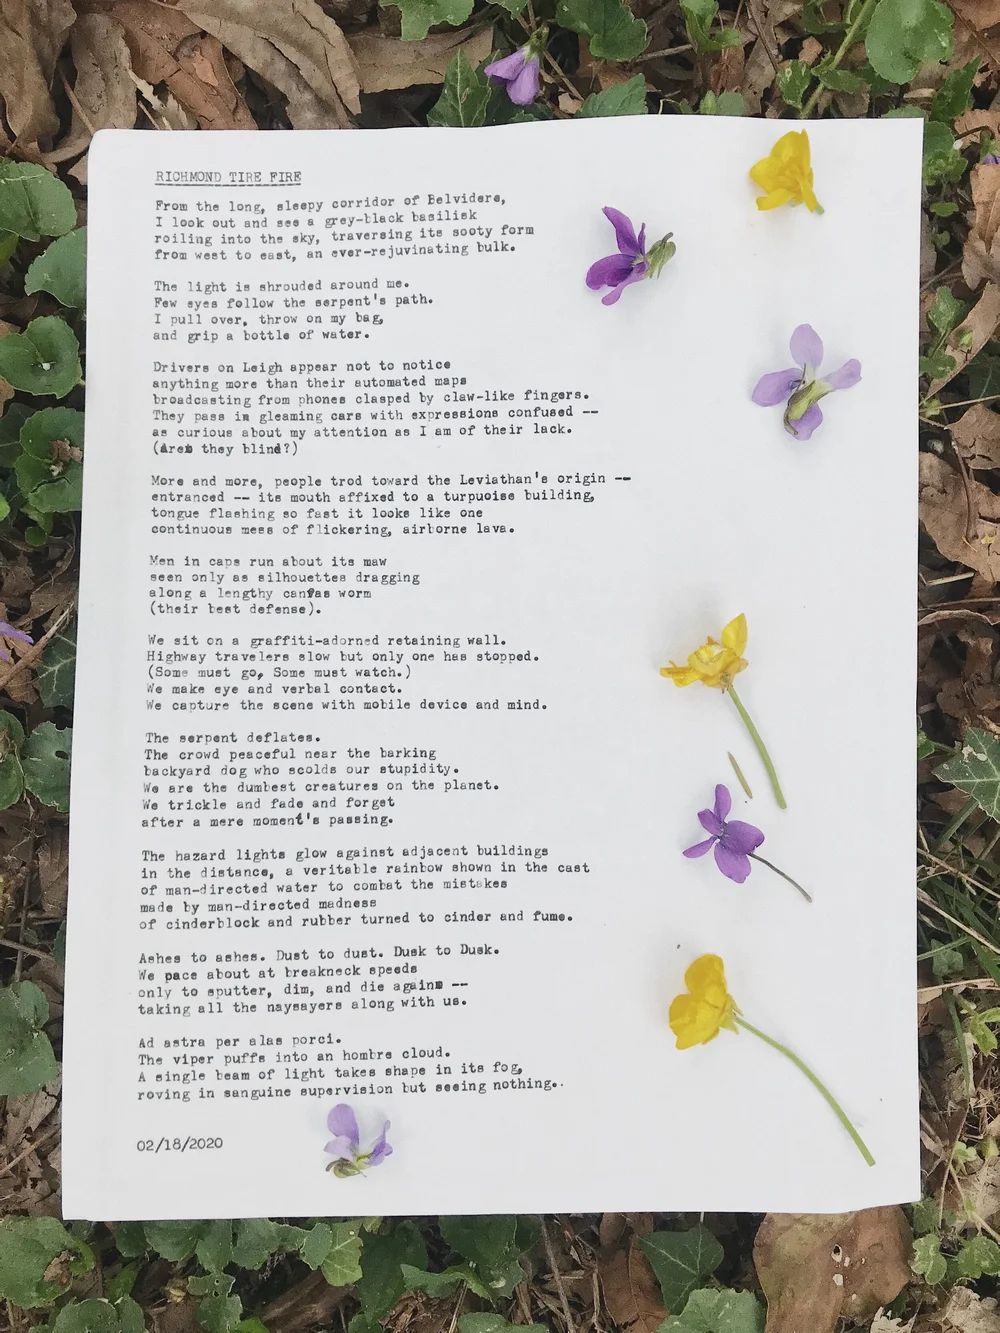 RICHMOND TIRE FIRE
From the long, sleepy corridor of Belvidere,
I look out and see a grey-black basilisk
roiling into the sky, traversing its sooty form
from west to east, an ever-rejuvinating bulk.
The light is shrouded around me.
Few eyes follow the serpent's path.
I pull over, throw on my bag,
and grip a bottle of water.
Drivers on Leigh appear not to notice
anything more than their automated maps
broadcasting from phones clasped by claw-like fingers.
They pass in gleaming cars with expressions confused --
as curious about my attention as I am of their lack.
(Are they blind?)
More and more, people trod toward the Leviathan's origin --
entranced -- its mouth affixed to a turpuoise building,
tongue flashing so fast it looks like one
continuous mess of flickering, airborne lava.
Men in caps run about its maw
seen only as silhouettes dragging
along a lengthy canvas worm
(their best defense).
We sit on a graffiti-adorned retaining wall.
Highway travelers slow but only one has stopped.
(Some must go, Some must watch.)
We make eye and verbal contact.
We capture the scene with mobile device and mind.
The serpent deflates.
The crowd peaceful near the barking
backyard dog who scolds our stupidity.
We are the dumbest creatures on the planet.
We trickle and fade and forget
after a mere moment's passing.
The hazard lights glow against adjacent buildings
in the distance, a veritable rainbow shown in the cast
of man-directed water to combat the mistakes
made by man-directed madness
of cinderblock and rubber turned to cinder and fume.
Ashes to ashes. Dust to dust. Dusk to Dusk.
We pace about at breakneck speeds
only to sputter, dim, and die again --
taking all the naysayers along with us.
Ad astra per alas porci.
The viper puffs into an hombre cloud.
A single beam of light takes shape in its fog,
roving in sanguine supervision but seeing nothing..
02/18/2020